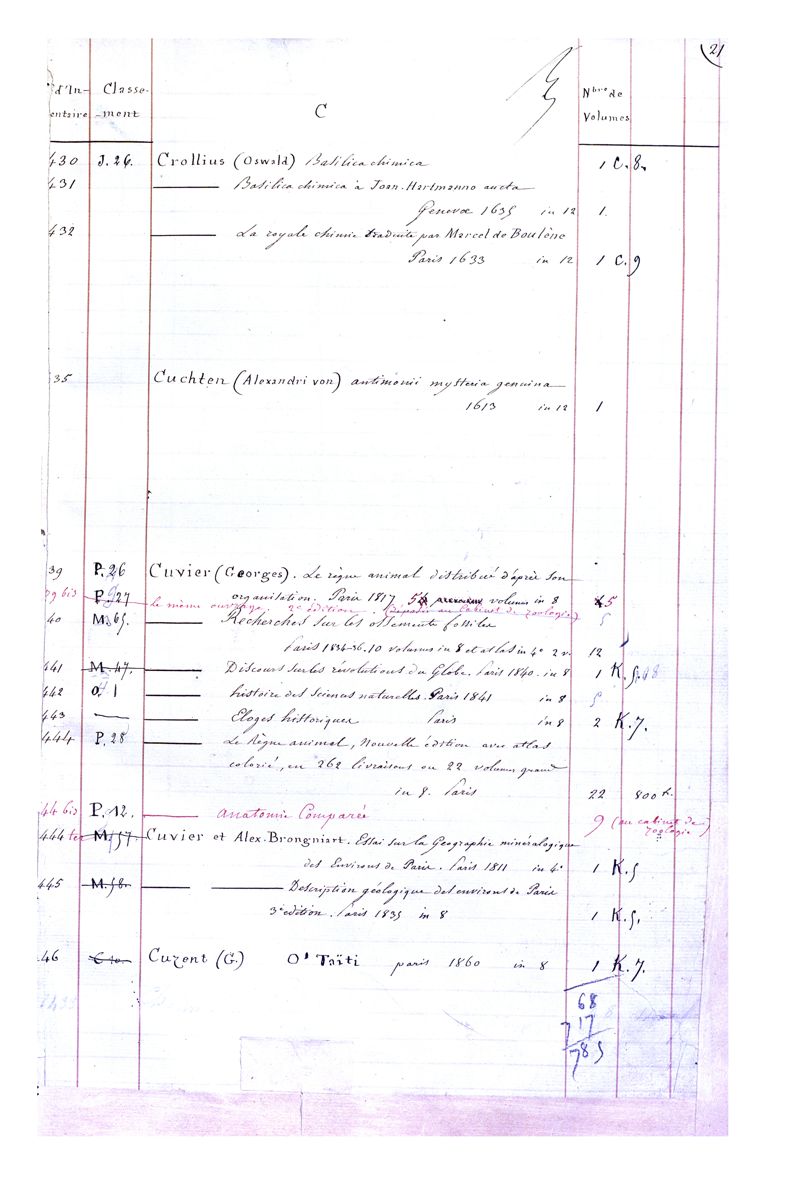 21
d'In- Classe- Nbre de
entaire -ment C Volumes
430 J.26. Crollius (Oswald) Basilica chimica 1 C.8.
431 Basilica chimica à Joan. Hartmanno aucta
Genevæ 1635 in 12 1.
432 La royale chimie traduite par Marcel de Boulène
Paris 1633 in 12 1 C.9
35 Cuchten (Alexandri von) antimonii mysteria genuina
1613 in 12 1
39 P.26 Cuvier (Georges). Le règne animal distribué d'après son
39 bis P.27 organisation. Paris 1817 volumes in 8 5
le même ouvrage. 2e édition. (Déposé au Cabinet de zoologie) 5
40 M.65. Recherches sur les ossements fossiles
Paris 1834-36. 10 volumes in 8 et atlas in 4° 2 v. 12
441 M.47. Discours sur les révolutions du Globe. Paris 1840. in 8 1 K.5.
442 O.1 histoire des sciences naturelles. Paris 1841 in 8 5
443 Eloges historiques Paris in 8 2 K.7.
444 P.28 Le Règne animal, Nouvelle édition avec atlas
colorié, en 262 livraisons ou 22 volumes grand
in 8. Paris 22 800 f.
44 bis P.12. Anatomie Comparée 9 (au cabinet de zoologie)
444 ter M.57 Cuvier et Alex. Brongniart. Essai sur la Geographie minéralogique
des Environs de Paris. Paris 1811 in 4° 1 K.5
445 M.58. Description géologique des environs de Paris
3e édition. Paris 1835 in 8 1 K.5.
46 Cuzent (G.) O'Taïti paris 1860 in 8 1 K.7.
68
717
785